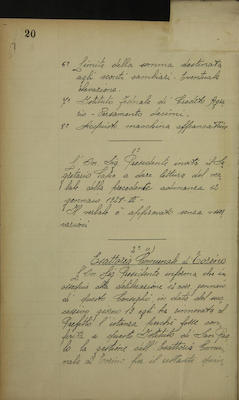 20
6° Limite della somma destinata
agli sconti cambiari. Eventuale
elevazione.
7° Istituto Federale di Credito Agra
rio - Versamento decimi.
8° Acquisto macchina affrancatrice
1°
L'On. Sig. Presidente invita il Se
gretario Capo a dare lettura del ver
bale della precedente adunanza
gennaio 1929
Il verbale è approvato senza osser
vazioni
2°
Esattoria Comunale di Torino
L'On. Sig. Presidente informa che in
esecuzione alla deliberazione
di questo Consiglio in data
giorno egli ha rinnovato al
Prefetto l'istanza perchè fosse con
ferita a questo Istituto di San Pao
lo la gestione dell'Esattoria Comu
nale di Torino per il restante